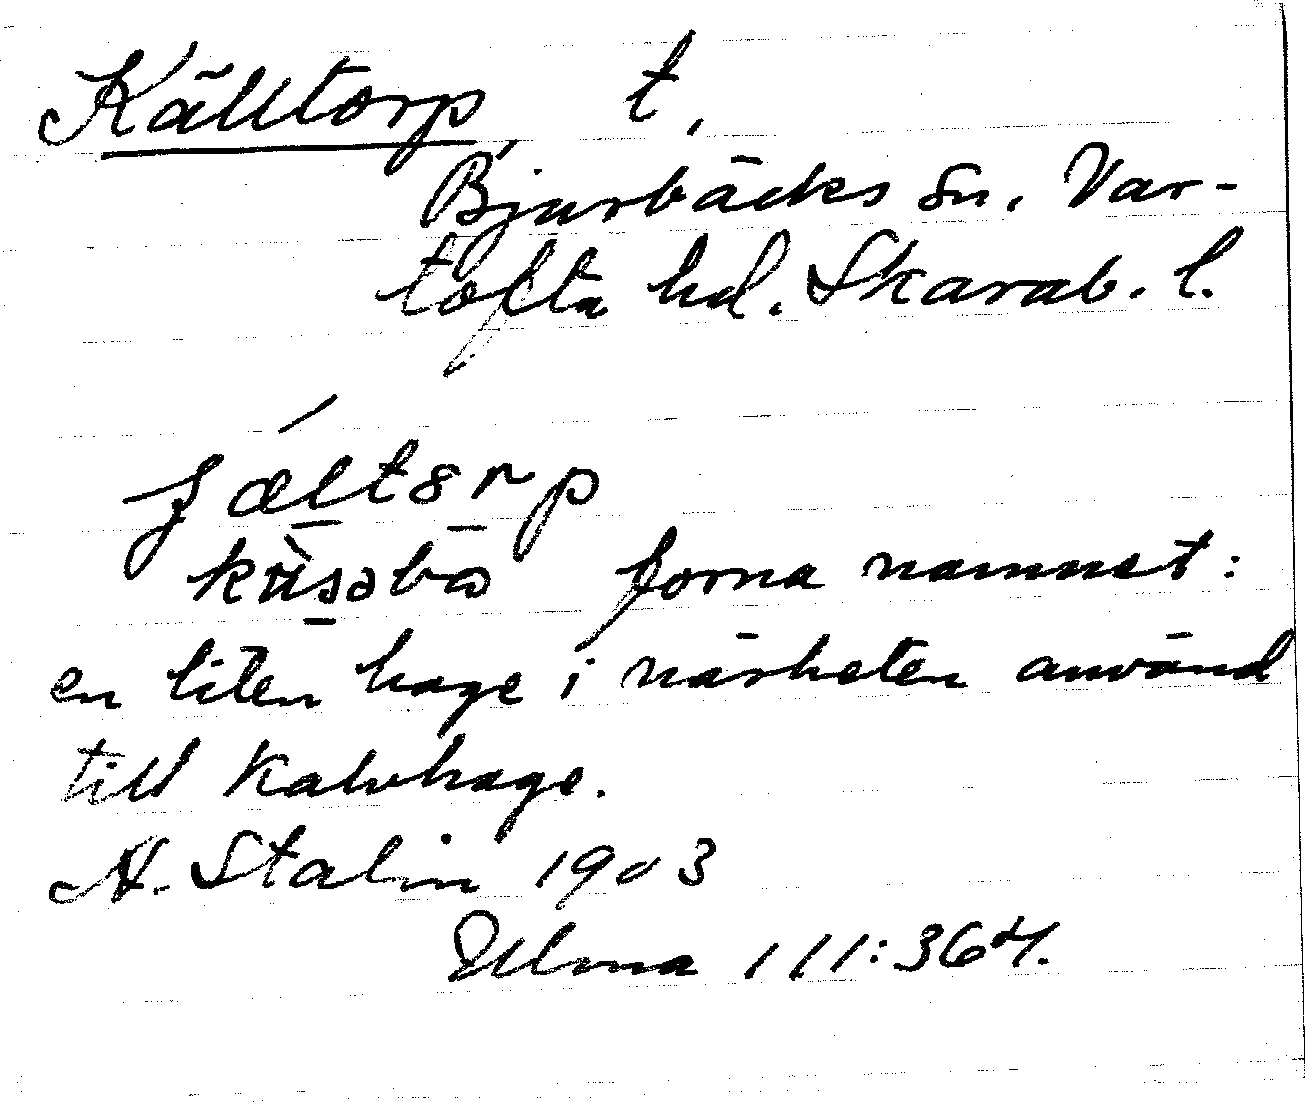 Källtorp t,
Bjurbäcks sn. Var-
tofta hd. Skarab. l.
forna namnet:
en liten hage i närheten använd
till kalvhage.
A. Stalin 1903
Ulma 111:364.